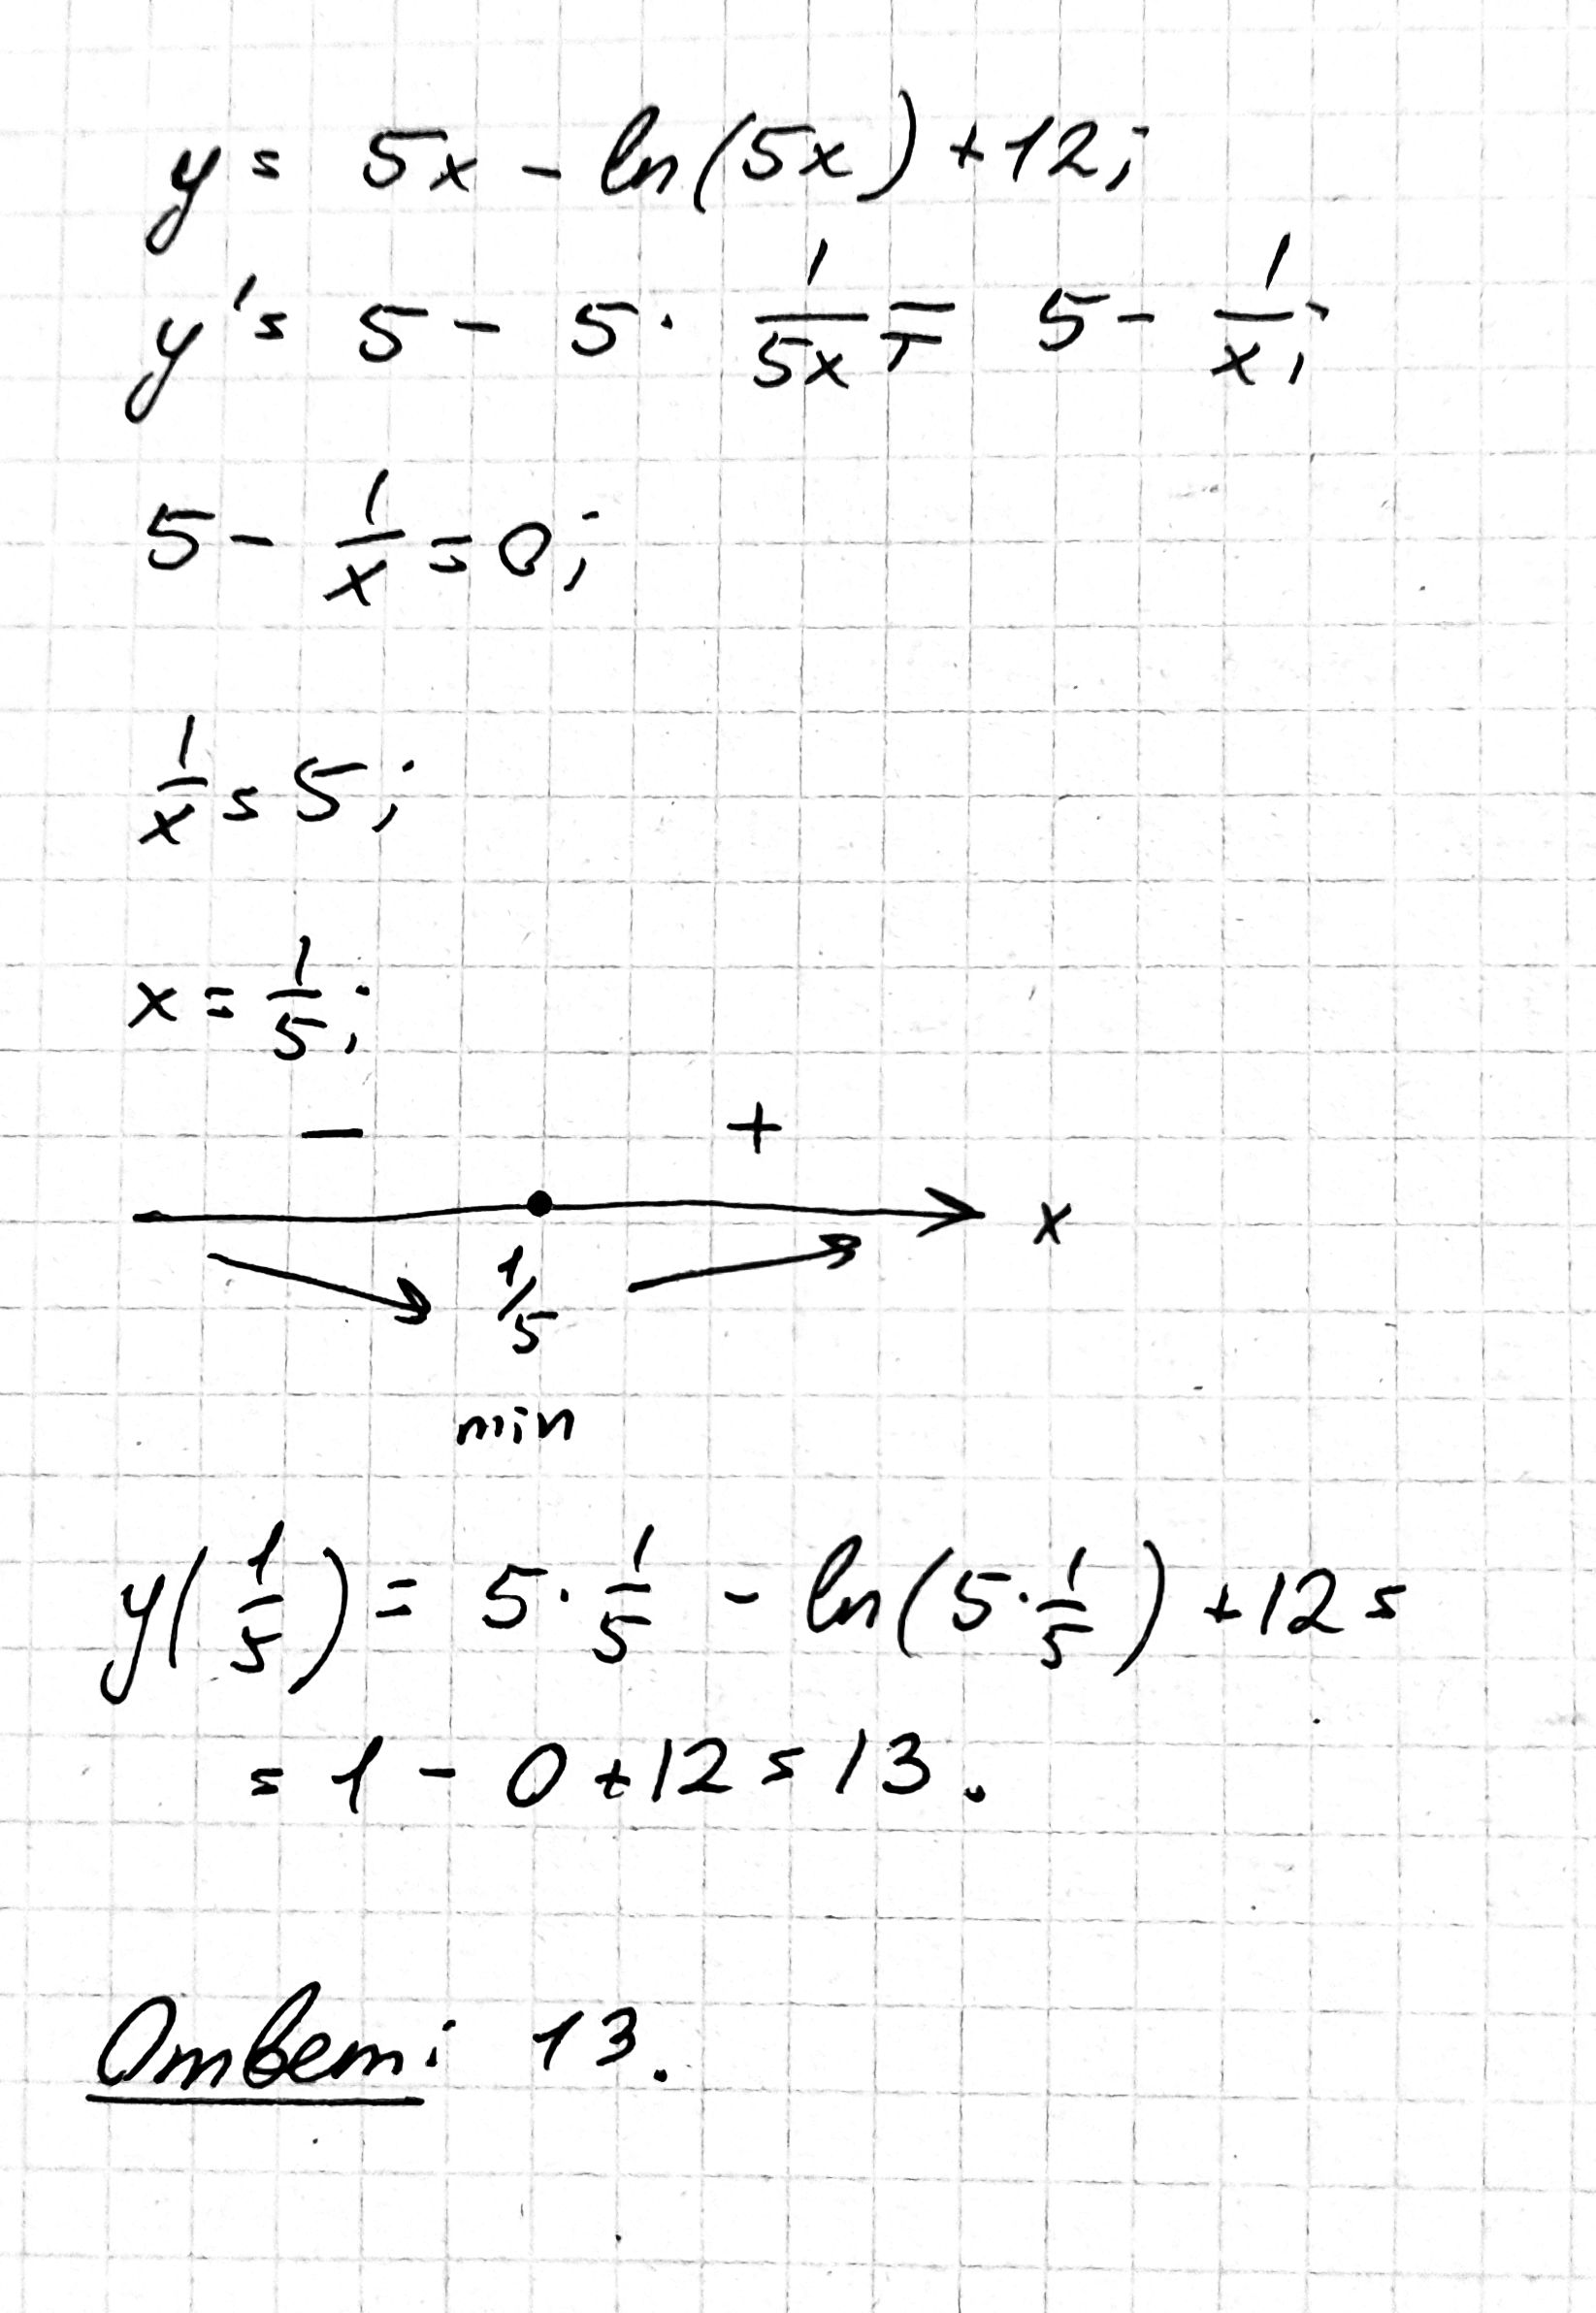 y = 5x - ln(5x) + 12;
y' = 5 - 5 · 1/5x = 5 - 1/x;
5 - 1/x = 0;
1/x = 5;
x = 1/5;
- +
x
1/5
min
y(1/5) = 5 · 1/5 - ln(5 · 1/5) + 12 =
= 1 - 0 + 12 = 13.
Ответ: 13.